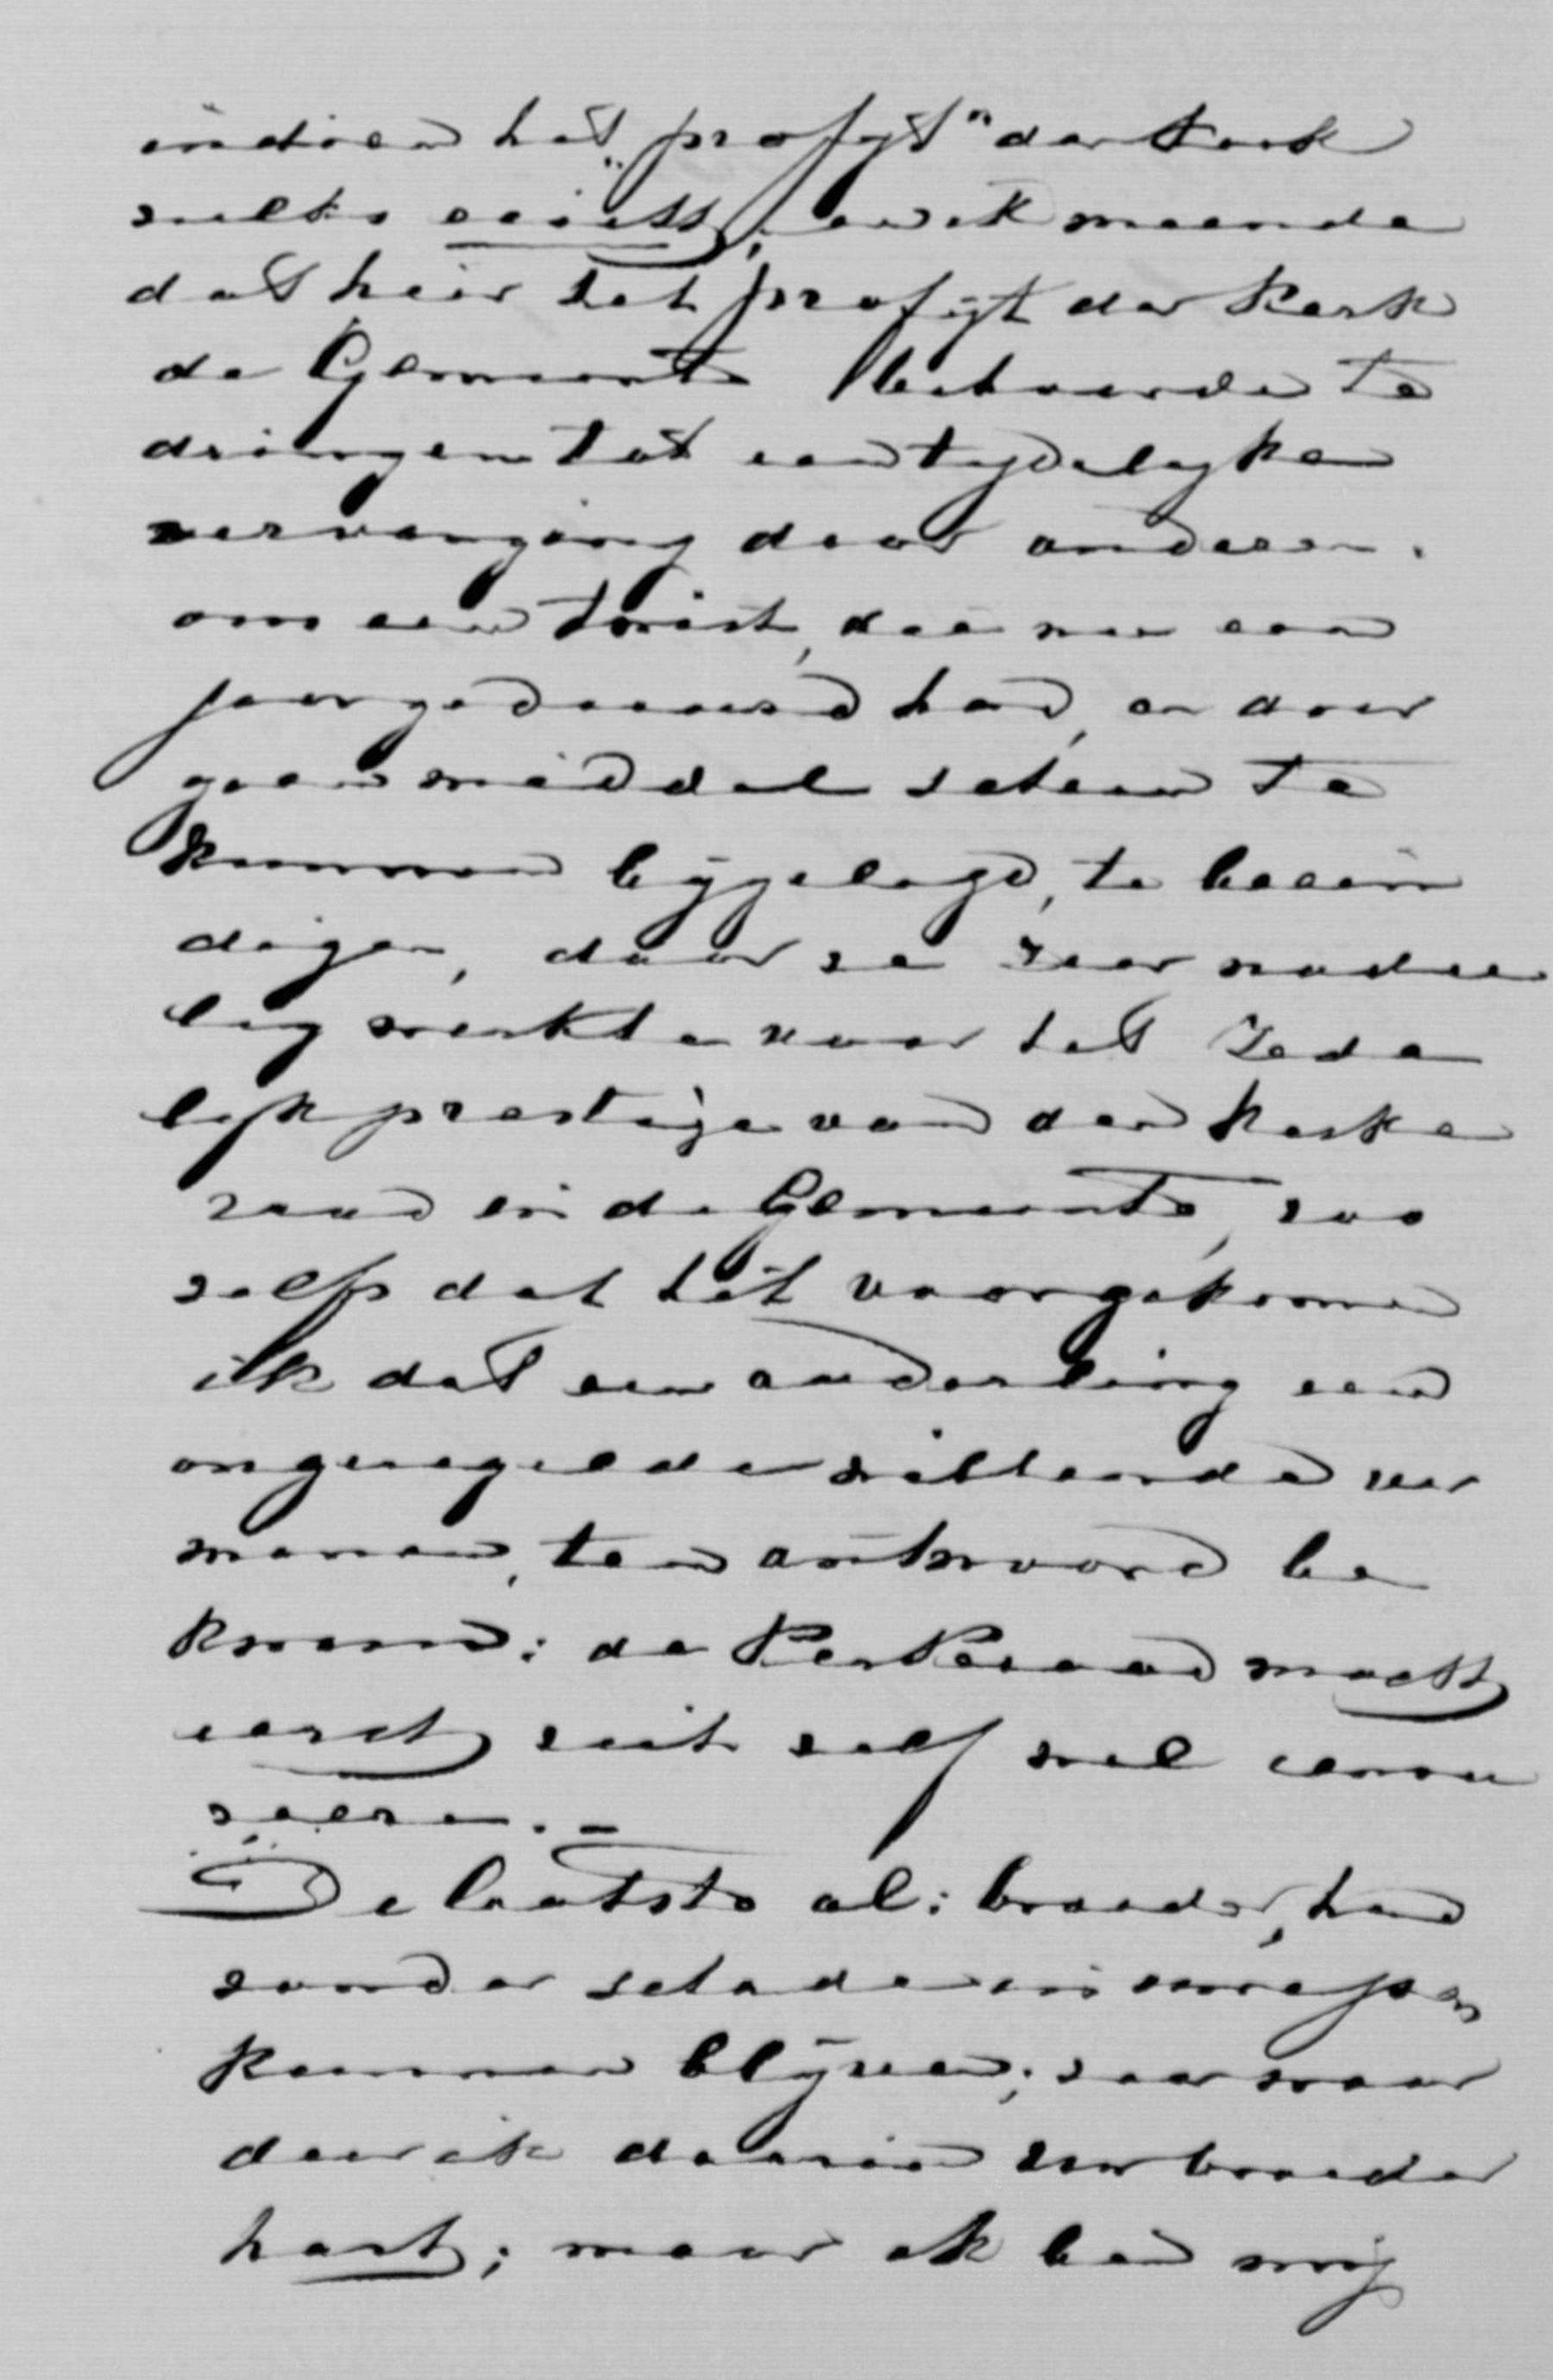 indien het „profyt" der Kerk
zulks eischt; en ik meende
dat hier het profyt der Kerk
de Gemeente bestuurde te
dringen tot een tydelyken
vervanging door anderen.
om een twist, die nu een
jaar geduurd had, en door
geen middel scheen te
kunnen bygelegd, te beein
digen, daar ze zeer nadee
lig werkte voor het Zede
lyk prestige van den Kerke
raad in de Gemeente, zoo
zelfs dat het voorgekomen
is dat een ouderling een
ongeregelde willende ver
manen, ten antwoord be
kwam: de Kerkeraad mocht
eerst zich zelf wel censu
reeren. –
De laatste al: broeder, had
zonder schade in
kunnen blyven; zoo maar
door ik daarin een broeder
hart; maar ik ben mij